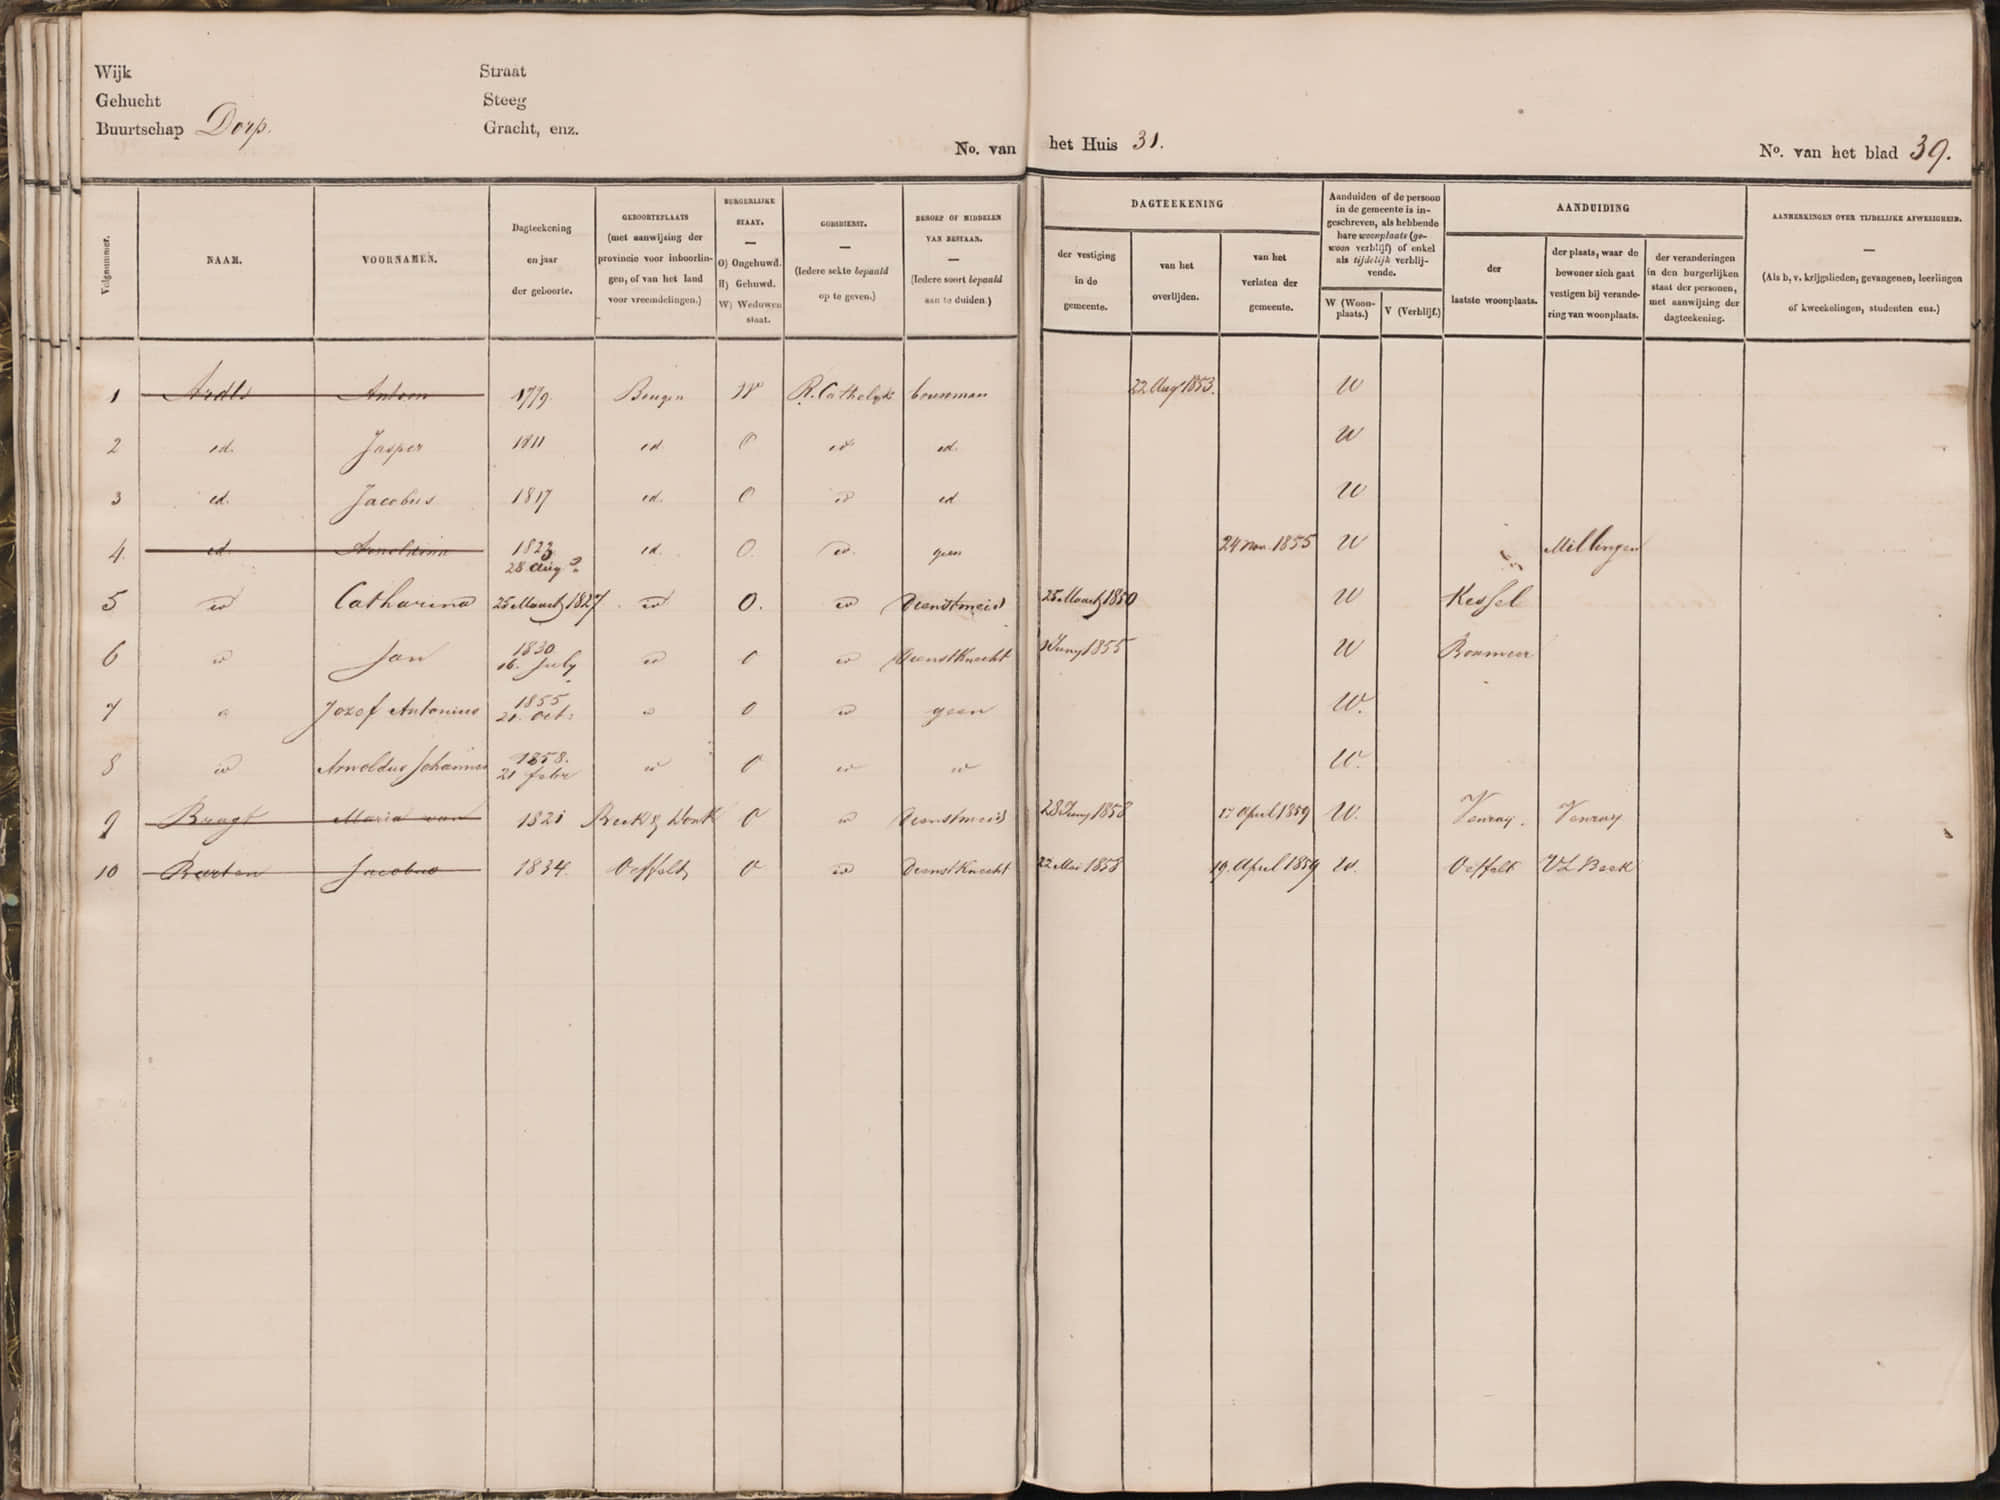 Wijk
Gehucht
Buurtschap Dorp.
Straat
Steeg
Gracht, enz.
No. van het Huis 31.
No. van het blad 39.
Volgnummer.
NAAM.
VOORNAMEN.
Dagteekening
en jaar
der geboorte.
GEBOORTEPLAATS
(met aanwijzing der
provincie voor inboorlin-
gen, of van het land
voor vreemdelingen.)
BURGERLIJKE
STAAT.
—
O) Ongehuwd.
H) Gehuwd.
W) Weduwen
staat.
GODSDIENST.
—
(Iedere sekte bepaald
op te geven.)
BEROEP OF MIDDELEN
VAN BESTAAN.
—
(Iedere soort bepaald
aan te duiden.)
DAGTEEKENING
der vestiging
in de
gemeente.
van het
overlijden.
van het
verlaten der
gemeente.
Aanduiden of de persoon
in de gemeente is in-
geschreven, als hebbende
hare woonplaats (ge-
woon verblijf) of enkel
als tijdelijk verblij-
vende.
W (Woon-
plaats.)
V (Verblijf.)
AANDUIDING
der
laatste woonplaats.
der plaats, waar de
bewoner zich gaat
vestigen bij verande-
ring van woonplaats.
der veranderingen
in den burgerlijken
staat der personen,
met aanwijzing der
dagteekening.
AANMERKINGEN OVER TIJDELIJKE AFWEZIGHEID.
—
(Als b, v. krijgslieden, gevangenen, leerlingen
of kweekelingen, studenten enz.)
1 Ardts Antoon 1779. Beugen W R. Catholyk bouwman 22 Aug 1853. W
2 id. Jasper 1811 id. O id id. W
3 id. Jacobus 1817 id. O id id W
4. id. Arnoldina 1823 28 Aug. id. O. id. geen 24 Nov. 1855 W Millingen
5 id Catharina 25 Maart 1827 id O. id Dienstmeid 25 Maart 1850 W Kessel
6 id Jan 1830 16. July id O id Dienstknecht Juny 1855 W Boxmeer
7 Jozef Antonius 1855 21. Oct: O id geen W.
8 id Arnoldus Johannes 1858. 21 febr id O id id W.
9 Bragt Maria van 1821 Beek & Donk O id Dienstmeid 28 Juny 1858 17 April 1859 W. Venray. Venray
10 Barten Jacobus 1834. Oeffelt O id Dienstknecht 22 Mei 1858 19. April 1859 W. Oeffelt VL Beek